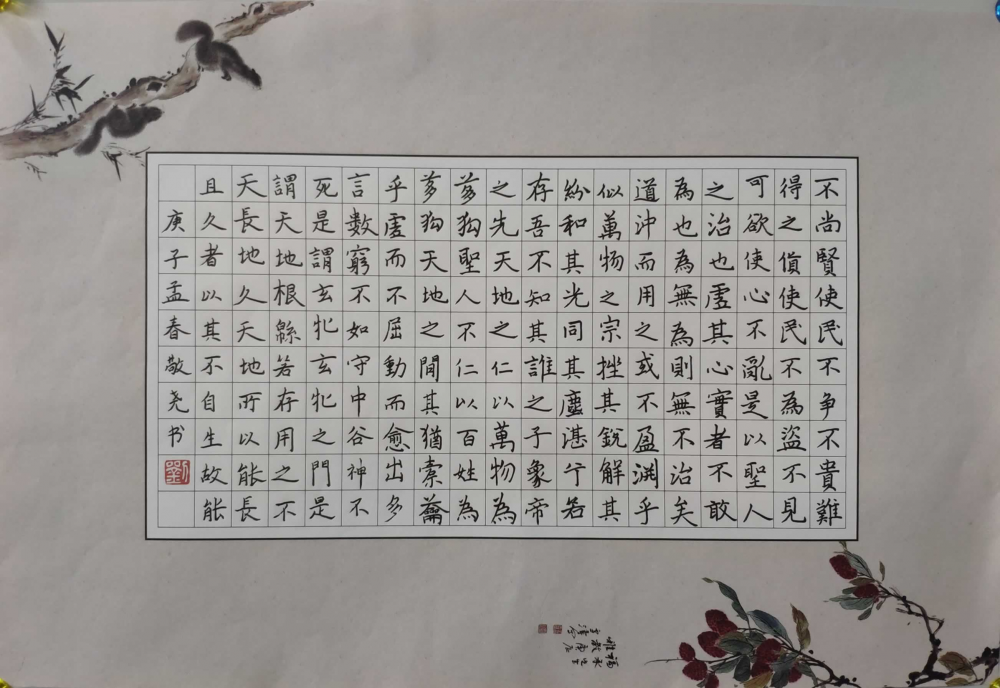 不尚賢使民不争不貴難
得之貨使民不為盜不見
可欲使心不亂是以聖人
之治也虛其心實者不敢
為也為無為則無不治矣
道沖而用之或不盈淵乎
似萬物之宗挫其銳解其
紛和其光同其塵湛兮若
存吾不知其誰之子象帝
之先天地之仁以萬物為
芻狗聖人不仁以百姓為
芻狗天地之間其猶橐籥
乎虛而不屈動而愈出多
言數窮不如守中谷神不
死是謂玄牝玄牝之門是
謂天地根緜若存用之不
天長地久天地所以能長
且久者以其不自生故能
庚子孟春敬尧书
劉